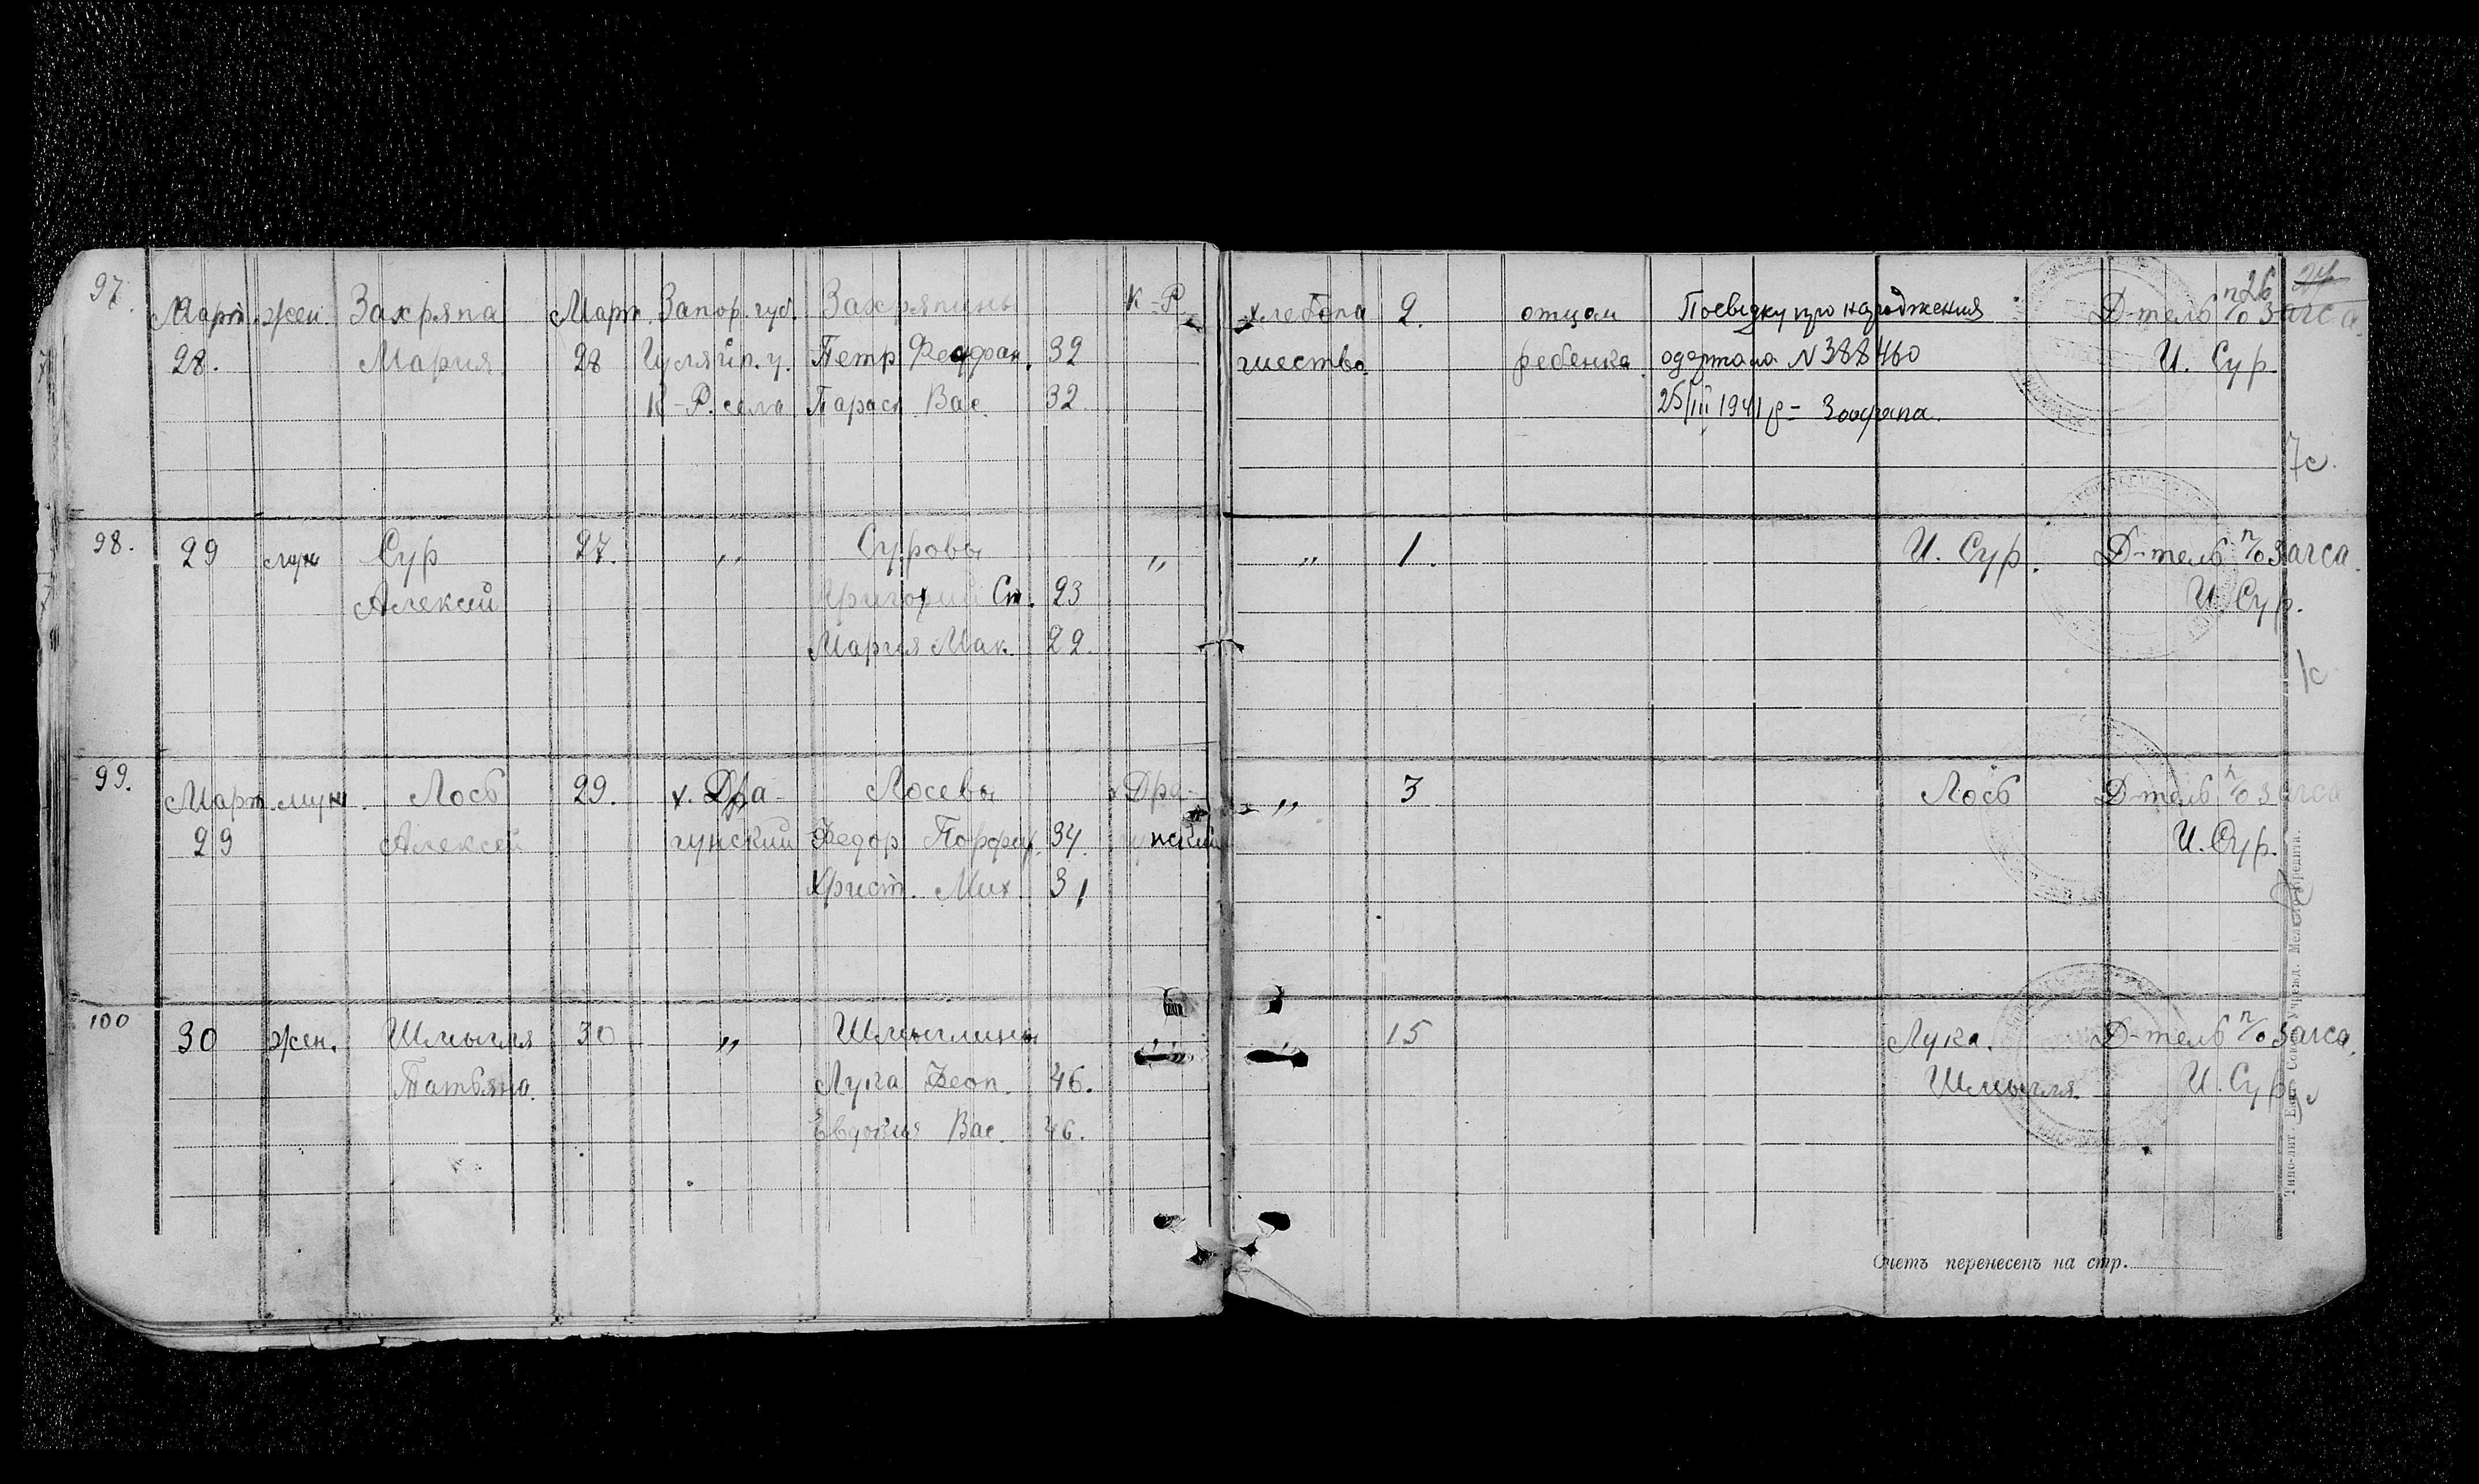 п26 24
97. Март. жен. Захряпа Март. Запор. губ. Захряпины К-Р. хлебопа 2. отцом Посвідку про народження Д-тель п/о Загса
28. Мария 28 Гуляйп. у. Петр Феофан. 32 шество. ребенка одержала N 388460 И. Сур.
К-Р. села Параск. Вас. 32. 25/III 1941 р -
7с.
98. 29 муж Сур 27. " Суровы " " 1. И. Сур. Д-тель п/о Загса.
Алексей Григорий Ст. 23 И. Сур.
Мария Мак. 22.
1с
99. Март. муж. Лось 29. х. Дра- Лосевы х Дра- " 3 Лось Д-тель п/о Загса
29 Алексей гунский Федор Порфир. 34. гунский И. Сур.
Христ. Мих. 31
100 30 жен. Шмыгля 30 " Шмыглины " " 15 Лука Д-тель п/о Загса.
Татьяна. Лука Феоп. 46. Шмыгля. И. Сур.
Евдокия Вас. 46.
Счетъ перенесенъ на стр.